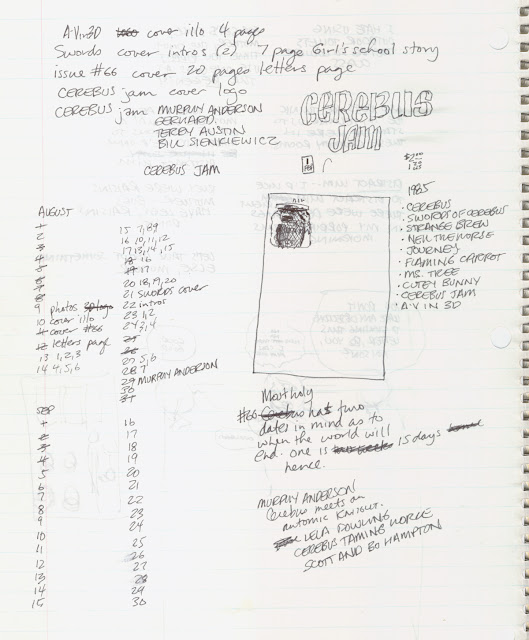 A-V in 3D logo cover illo 4 pages
Swords cover intros (2) 7 page Girl's school story
issue #66 cover 20 pages letters page
CEREBUS jam cover logo
CEREBUS jam MURPHY ANDERSON
GERHARD.
TERRY AUSTIN
BILL SIENKIEWICZ
CEREBUS JAM
CEREBUS
JAM
1
$2.00
1985
· CEREBUS
· SWORDS OF CEREBUS
· STRANGE BREW
· NEIL THE HORSE
· JOURNEY
· FLAMING CARROT
· MS. TREE
· CUTEY BUNNY
· CEREBUS JAM
· A-V IN 3D
AUGUST
1
2
3
4
5
6
7
8
9 photos 3D logo
10 cover illo
11 cover #66
12 letters page
13 1,2,3
14 4,5,6
15 7,8,9
16 10,11,12
17 13,14,15
18 16
19 17
20 18,19,20
21 swords cover
22 intros
23 1,2
24 2,3,4
25
26
27 5,6
28 7
29 MURPHY ANDERSON
30
31
SEP
1
2
3
4
5
6
7
8
9
10
11
12
13
14
15
16
17
18
19
20
21
22
23
24
25
26
27
28
29
30
Most holy
#66 Cerebus has two
dates in mind as to
when the world will
end. one is 15 days
hence.
MURPHY ANDERSON
Cerebus meets an
automic KNIGHT.
LELA DOWLING
CEREBUS TAMING HORSE
SCOTT AND BO HAMPTON